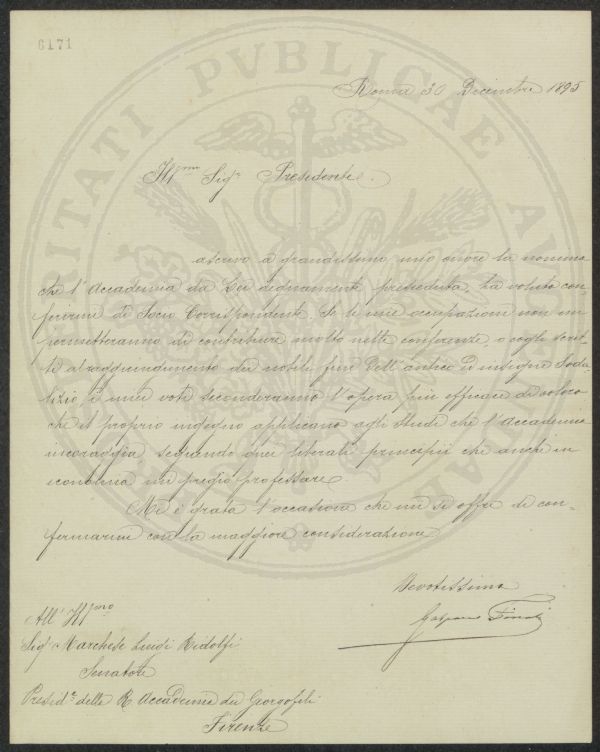 6171
Roma 30 Dicembre 1895
Ill.mo Sig.r Presidente.
ascrivo a grandissimo mio onore la nomina
che l'Accademia da Lei degnamente presieduta, ha voluto con-
ferirmi di Socio Corrispondente. Se le mie occupazioni non mi
permetteranno di contribuire molto nelle conferenze, o cogli scrit-
ti al raggiungimento dei nobili fini dell'antico ed insigne Soda-
lizio, i miei voti seconderanno l'opera più efficace di coloro
che il proprio ingegno applicano agli Studi che l'Accademia
incoraggia, seguendo quei liberali principii che anche in
economia mi pregio professare.
Mi è grata l'occasione che mi si offre di con-
fermarmi con la maggiore considerazione
Devotissimo
Gaspare Finali
All' Ill.mo
Sig.r Marchese Luigi Ridolfi
Senatore
Presid.e della R. Accademia dei Georgofili
Firenze
PVBLICAE